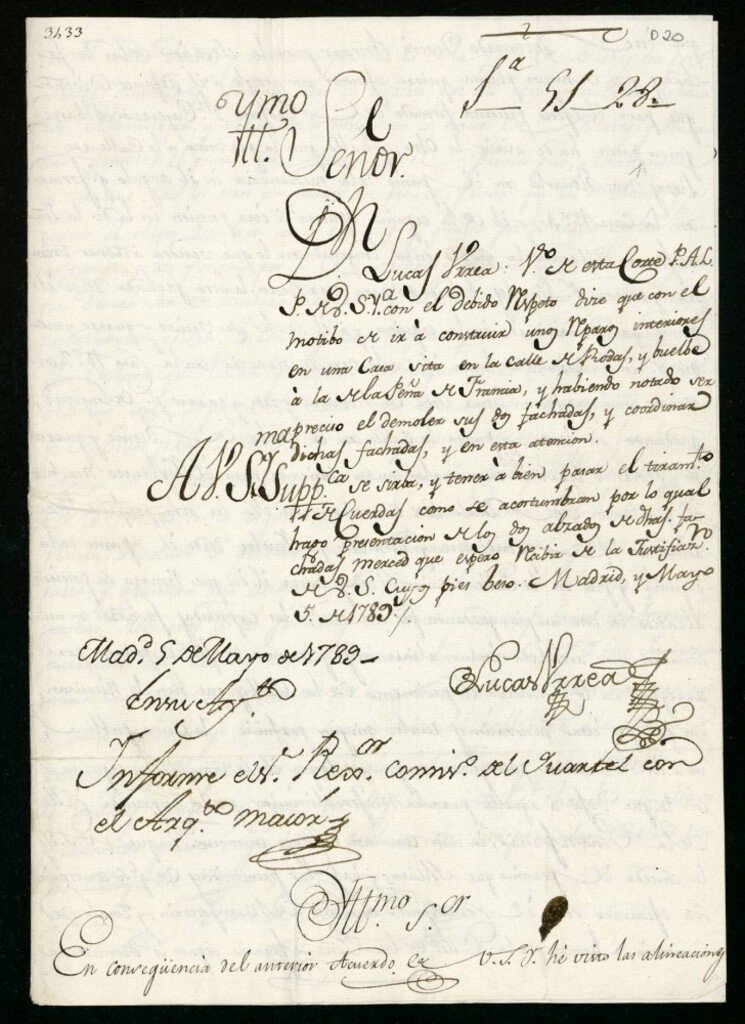 3433
D20
1ª 51 28.
Ymo
Ill. Señor.
Dn
Lucas Urrea: Vº. de esta Corte P. A. L.
P. de V. S. Yª con el debido Respeto dize que con el
motibo de ir à construir unos Reparos interiores
en una Casa sita en la calle de Rodas, y buelbe
à la de la Peña de Francia, y habiendo notado ser
mapreciso el demoler sus dos fachadas, y coordinar
dichas fachadas, y en esta atencion.
A V. S. Y. Suppca. se sirba, y tener à bien pasar el tiramto.
de Cuerdas como se acostumbran por lo qual
hago presentacion de los dos alzados de dhas. fa-
chadas merced que espero Recibir de la Justificazn.
de V. S. Cuyos pies beso. Madrid, y Mayo
5. de 1789./.
Madd. 5 de Mayo de 1789
Lucas Urrea
En su Aytto
Informe el Sr. Rexor. Comisº. del Quartel con
el Arqto. maior
Illmo Sor
En conseqüencia del anterior Acuerdo de V. S. Y. hé visto las alineaciones